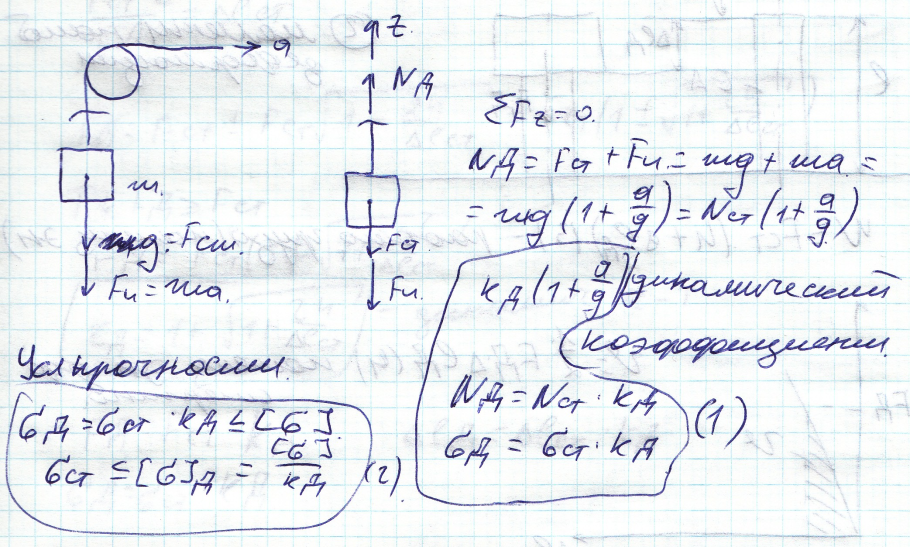 a
z
Nд
m.
mg = Fcm.
Fu = ma.
Fст
Fu.
ΣFz = 0.
Nд = Fст + Fu = mg + ma =
= mg (1 + a/g) = Nст (1 + a/g)
kд (1 + a/g) динамический
коэффициент.
Nд = Nст · kд
σд = σст · kд
(1)
Усл прочности.
σд = σст · kд ≤ [σ].
σст ≤ [σ]д = [σ]/kд (2)